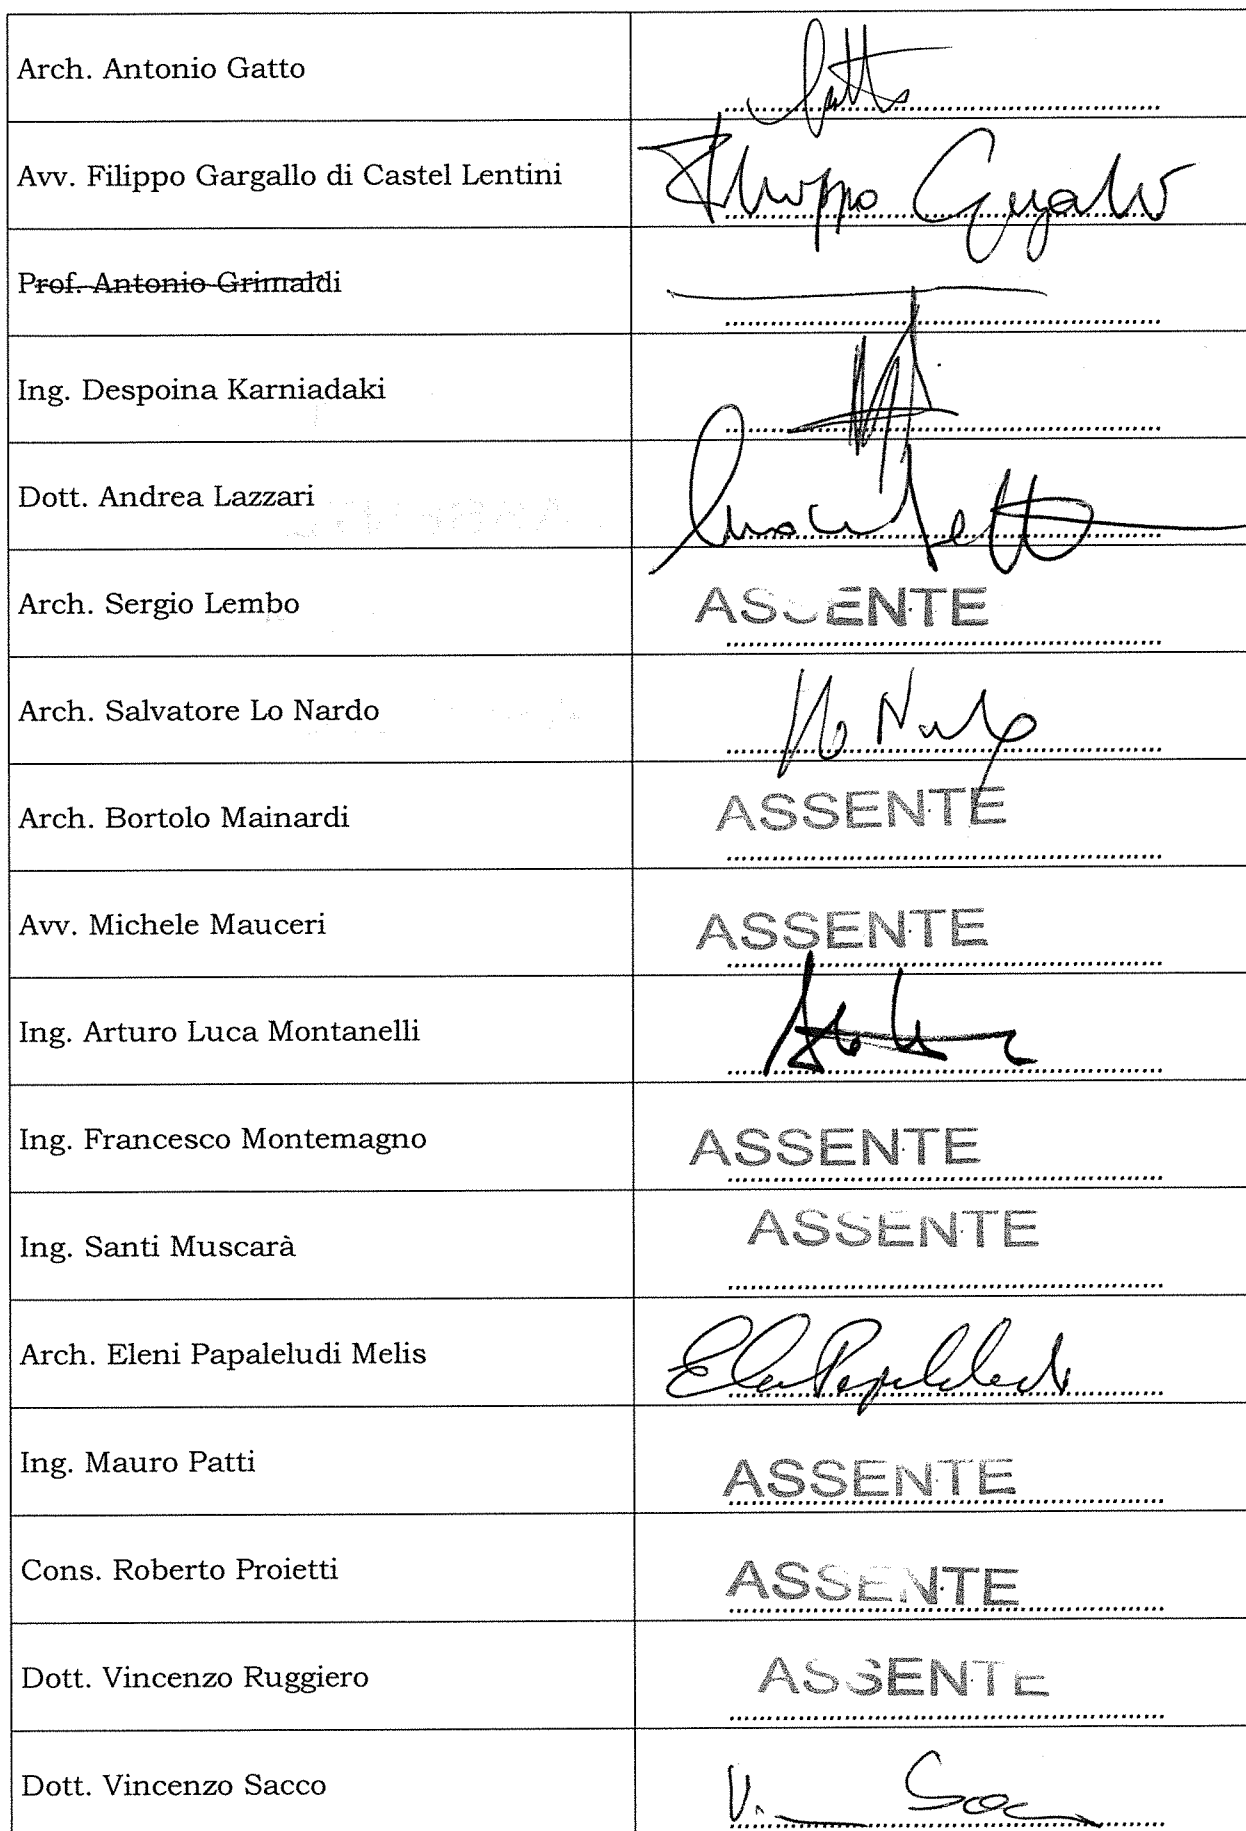 Arch. Antonio Gatto
Gatto
Avv. Filippo Gargallo di Castel Lentini
Filippo Gargallo
Prof. Antonio Grimaldi
Ing. Despoina Karniadaki
Dott. Andrea Lazzari
Arch. Sergio Lembo
ASSENTE
Arch. Salvatore Lo Nardo
Lo Nardo
Arch. Bortolo Mainardi
ASSENTE
Avv. Michele Mauceri
ASSENTE
Ing. Arturo Luca Montanelli
Ing. Francesco Montemagno
ASSENTE
Ing. Santi Muscarà
ASSENTE
Arch. Eleni Papaleludi Melis
Ing. Mauro Patti
ASSENTE
Cons. Roberto Proietti
ASSENTE
Dott. Vincenzo Ruggiero
ASSENTE
Dott. Vincenzo Sacco